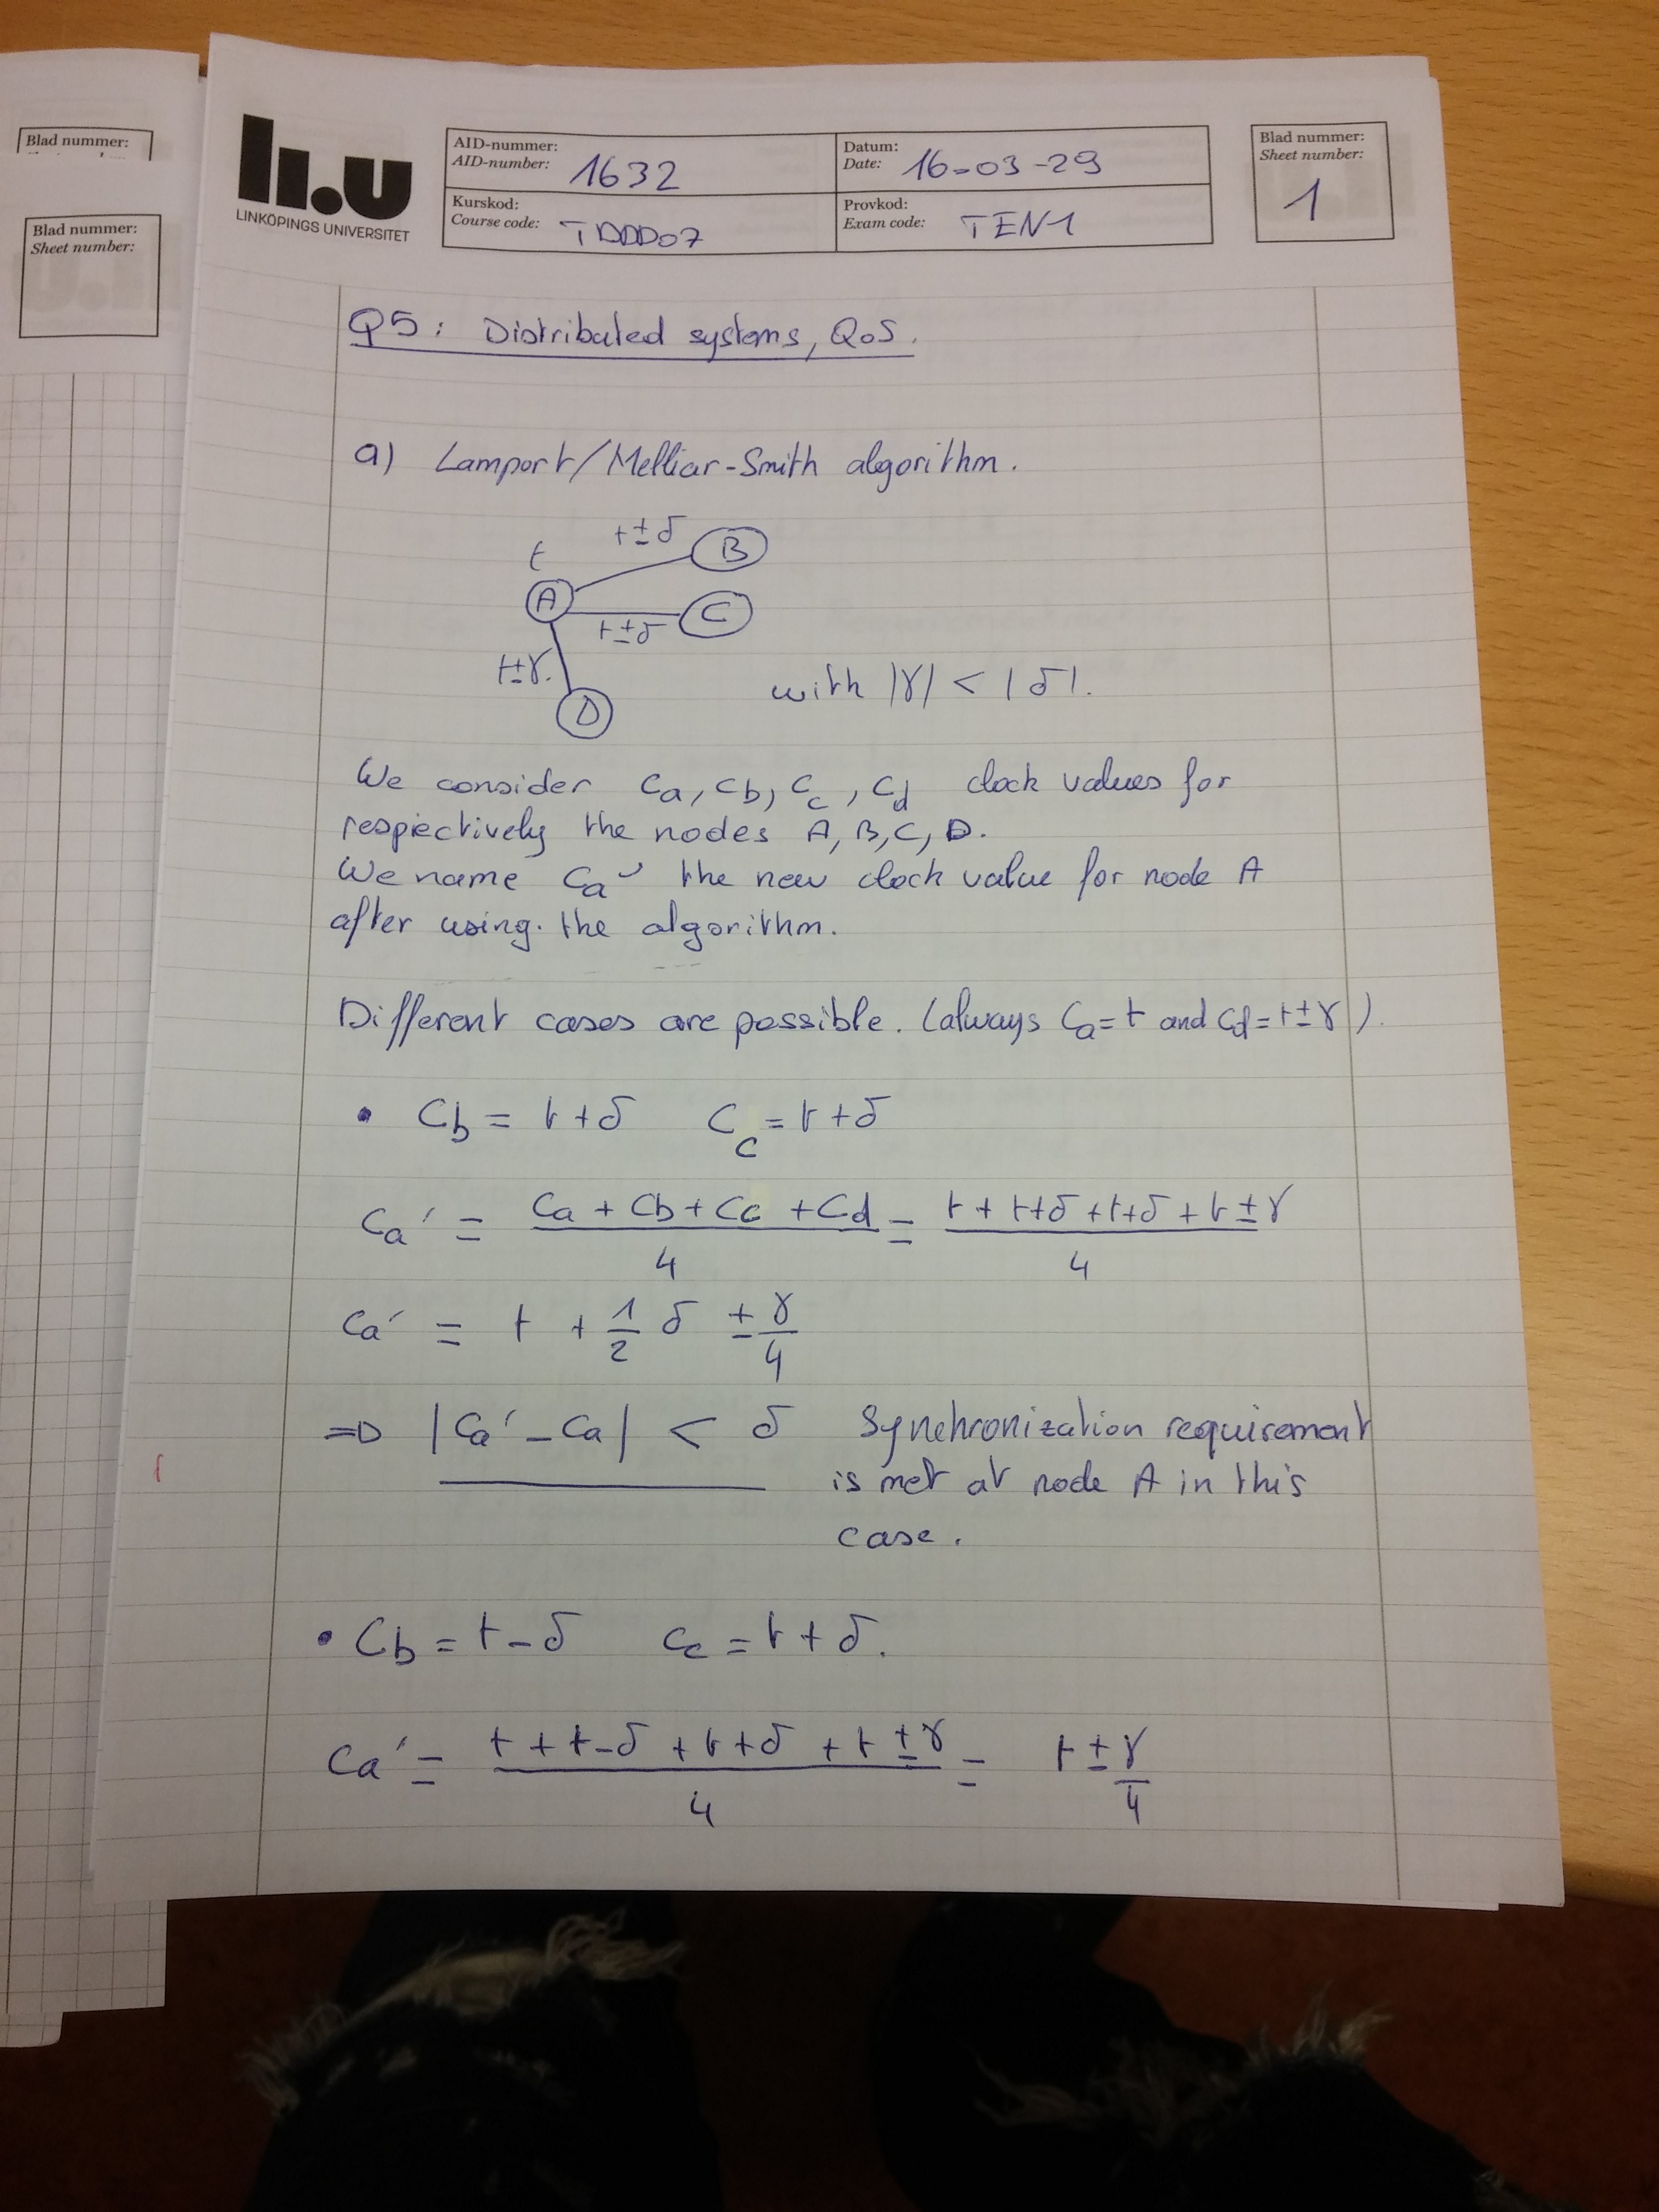 Blad nummer:
Blad nummer:
Sheet number:
li.u
LINKÖPINGS UNIVERSITET
AID-nummer:
AID-number: 1632
Datum:
Date: 16-03-29
Kurskod:
Course code: TDDD07
Provkod:
Exam code: TEN1
Blad nummer:
Sheet number:
1
Q5: Distributed systems, QoS.
a) Lamport/Melliar-Smith algorithm.
t±δ
B
t
A
C
t±δ
t±γ.
D
with |γ| < |δ|.
We consider Ca, Cb, Cc, Cd clock values for
respectively the nodes A, B, C, D.
We name Ca' the new clock value for node A
after using. the algorithm.
Different cases are possible. (always Ca = t and Cd = t±γ).
• Cb = t+δ Cc = t+δ
Ca' = (Ca + Cb + Cc + Cd)/4 = (t + t+δ + t+δ + t±γ)/4
Ca' = t + 1/2 δ ± γ/4
=D |Ca' - Ca| < δ Synchronization requirement
is met at node A in this
case.
• Cb = t-δ Cc = t+δ.
Ca' = (t + t-δ + t+δ + t±γ)/4 = t ± γ/4